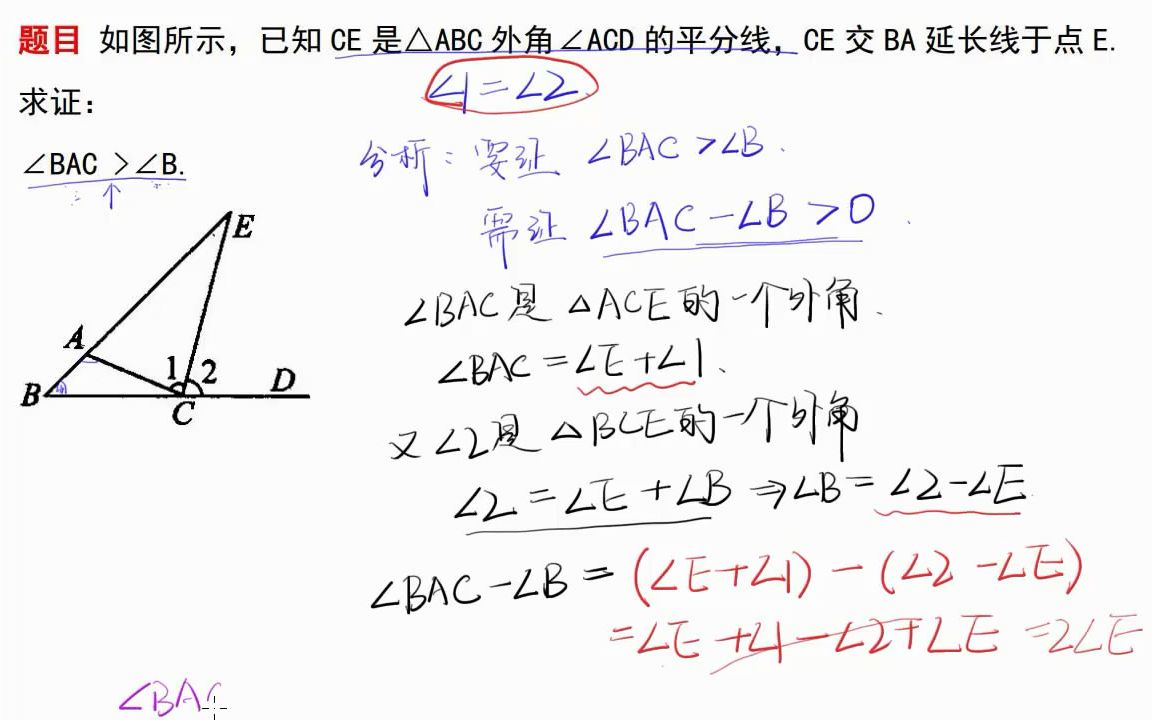 题目 如图所示，已知 CE 是△ABC 外角∠ACD 的平分线，CE 交 BA 延长线于点 E.
∠1=∠2.
求证：
∠BAC >∠B.
分析：要证 ∠BAC >∠B.
需证 ∠BAC -∠B >0.
E
A
1 2
B
C
D
∠BAC是 △ACE的一个外角.
∠BAC =∠E+∠1.
又∠2是 △BCE的一个外角
∠2 =∠E +∠B ⇒∠B= ∠2-∠E
∠BAC-∠B = (∠E+∠1) - (∠2 -∠E)
=∠E +∠1 -∠2+∠E =2∠E
∠BAC